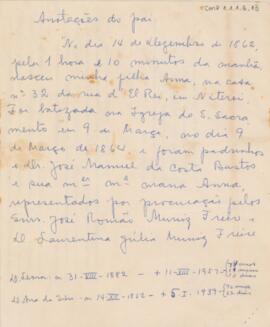 Anotações do pai
No dia 14 de Dezembro de 1862,
pela 1 hora e 10 minutos da manhã
nasceu minha filha Anna, na casa
nº 32 da rua d'El Rei, em Niteroi.
Foi batizada na Igreja do S. Sacra
mento em 9 de Março, no dia 9
de Março de 1864 e foram padrinhos
o Dr. José Manuel da Costa Bastos
e sua mer mª Anna,
representados por procuração pelos
Snrs. José Romão Muniz Freire e
D Laurentina Júlia Muniz Freire
31-VIII-1882 - + 11-VIII-1957
14 XII-1862 - + 5-I-1939